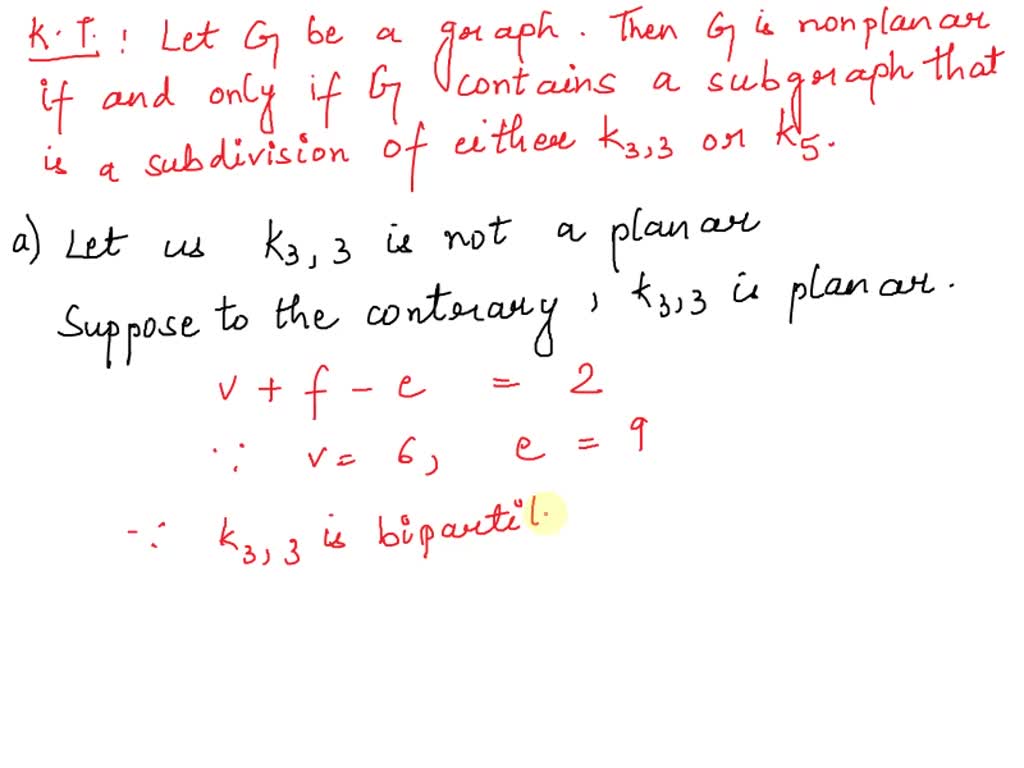 K.T. : Let G be a graph. Then G is nonplanar
if and only if G contains a subgraph that
is a subdivision of either K3,3 or K5.
a) Let us K3,3 is not a planar
Suppose to the conterary, K3,3 is planar.
v + f - e = 2
∵ v = 6, e = 9
∵ K3,3 is biparti